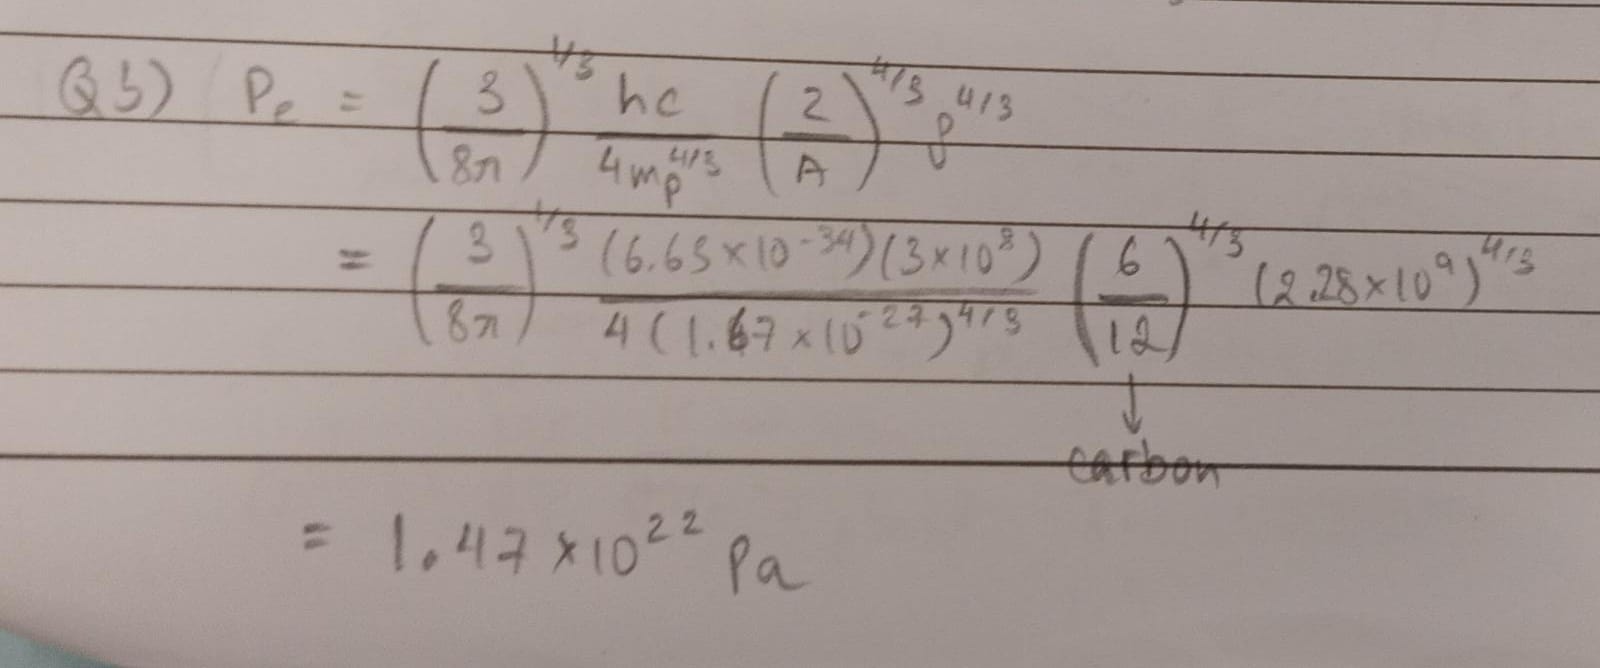 Q5) Pe = (3/8π)^1/3 hc/4mp^4/3 (Z/A)^4/3 ρ^4/3
= (3/8π)^1/3 (6.63×10^-34)(3×10^8)/4(1.67×10^-27)^4/3 (6/12)^4/3 (2.28×10^9)^4/3
↓
carbon
= 1.47×10^22 Pa